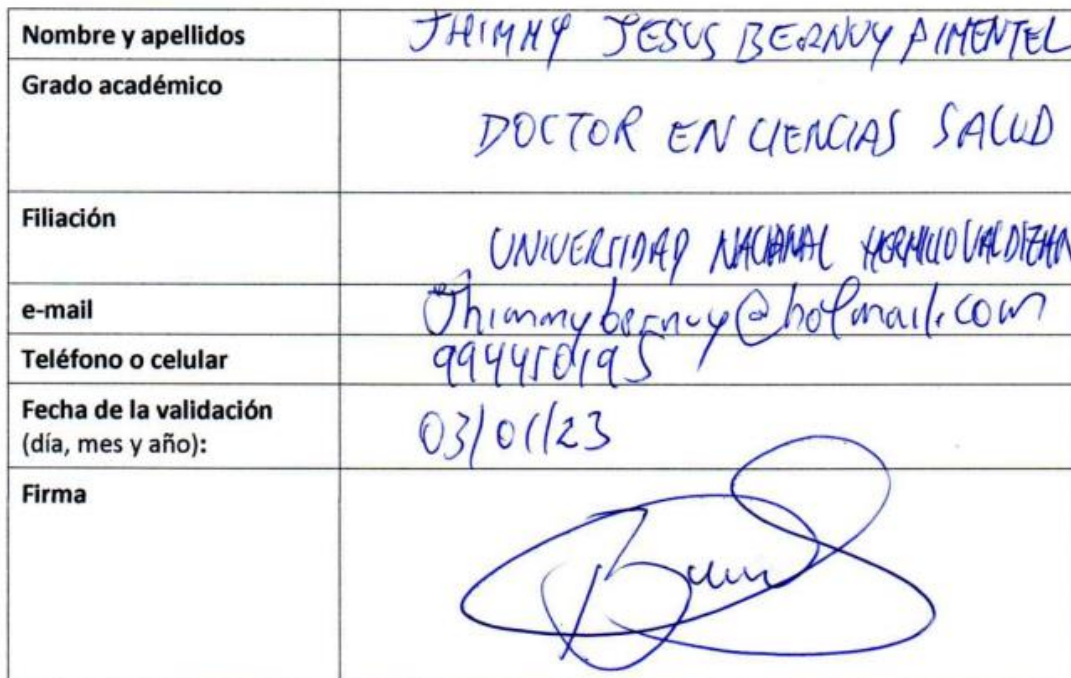 Nombre y apellidos
JHIMMY JESUS BERNUY PIMENTEL
Grado académico
DOCTOR EN CIENCIAS SALUD
Filiación
UNIVERSIDAD NACIONAL HERMILIO VALDIZAN
e-mail
Jhimmybernuy@hotmail.com
Teléfono o celular
994450195
Fecha de la validación
(día, mes y año):
03/01/23
Firma